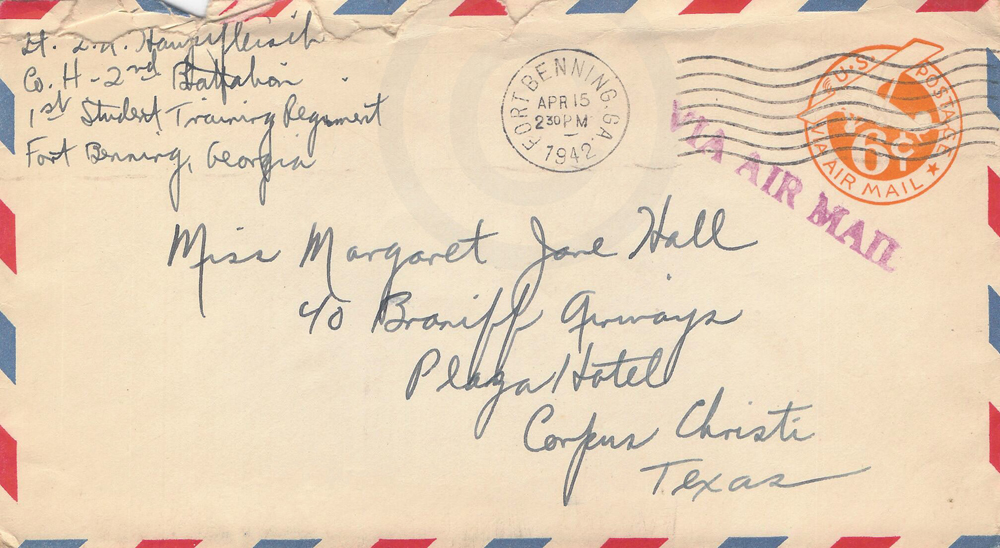 Lt. L.A.
Co. H - 2nd Battalion
1st Student Training Regiment
Fort Benning, Georgia
FORT BENNING, GA.
APR 15
2 30 PM
1942
U.S. POSTAGE
6¢
VIA AIR MAIL
VIA AIR MAIL
Miss Margaret Jane Hall
c/o Braniff Airways
Plaza Hotel
Corpus Christi
Texas